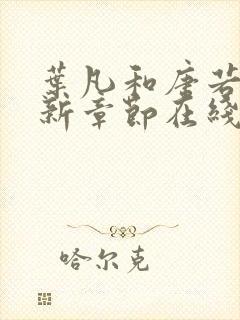 葉凡和唐若
新章節在綫
哈尔克